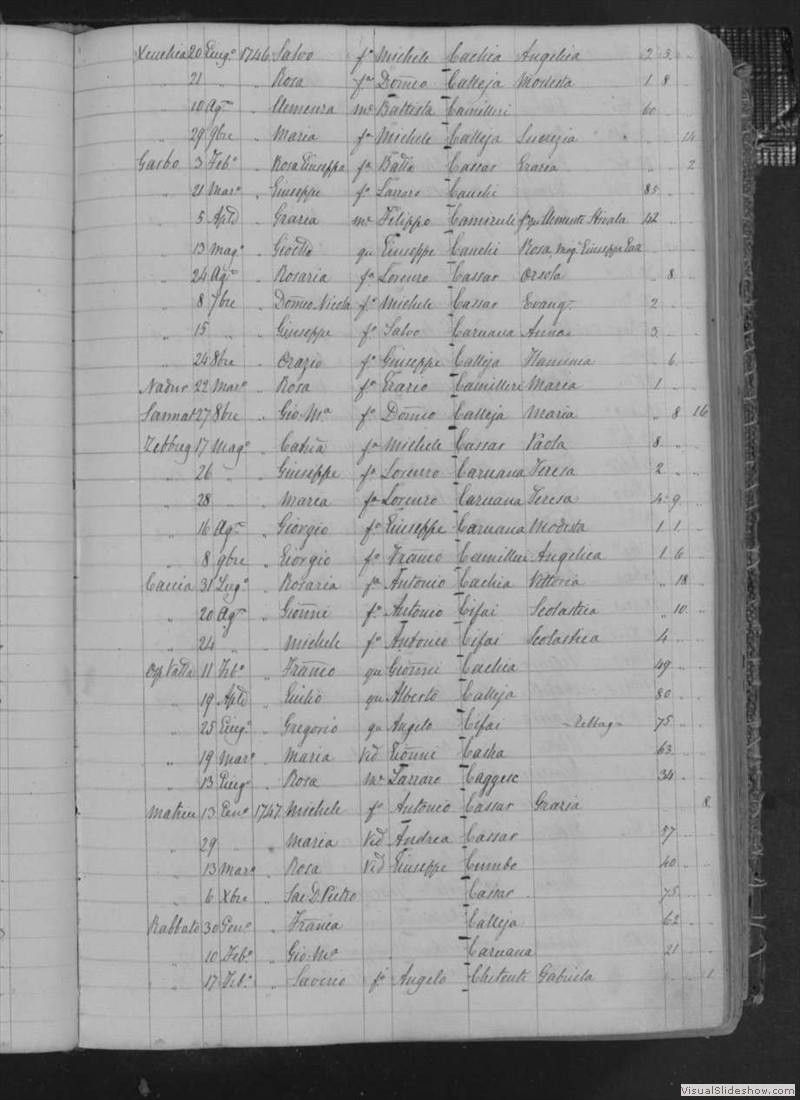 Xeuchia 20 Giug.º 1746 Salvo fº Michele Cachia Angelica 2 3 ..
" 21 " .. Rosa fª Domeo Calleja Modesta 1 8 ..
" 10 Ag.to .. Clemenza me Battista Camilleri 60 .. ..
" 29 9bre .. Maria fª Michele Calleja Lucrezia .. .. 14
Garbo 3 Feb.º .. Rosa Giuseppa fª Batta Cassar Grazia " .. 2
" 21 Mar.º .. Giuseppe fº Lazzaro Cauchi 85 .. ..
" 5 Aple .. Grazia me Filippo fª qu Clemente 42 .. ..
" 13 Mag.º .. qu Giuseppe Cauchi Rosa, mog. Giuseppe
" 24 Ag.to .. Rosaria fª Lorenzo Cassar Orsola .. 8 ..
" 8 7bre .. Domeo Nicola fº Michele Cassar Evang.ta 2 .. ..
" 15 " .. Giuseppe fº Salvo Caruana Anna 3 .. ..
" 24 8bre .. Orazio fº Giuseppe Calleja .. 6 ..
Nadur 22 Mar.º .. Rosa fª Camilleri Maria 1 .. ..
Sannat 27 8bre .. Gio. Mª fº Domeo Calleja Maria " 8 16
Zebbug 17 Mag.º .. Catña fª Michele Cassar Paola 8 .. ..
" 26 " .. Giuseppe fº Lorenzo Caruana Teresa 2 .. ..
" 28 " .. Maria fª Lorenzo Caruana Teresa 4 9 ..
" 16 Ag.to .. Giorgio fº Giuseppe Caruana Modesta 1 1 ..
" 8 9bre .. Giorgio fº Franco Camilleri Angelica 1 6 ..
Caccia 31 Lug.º .. Rosaria fª Antonio Cachia Vittoria " 18 ..
" 20 Ag.to .. Gionni fº Antonio Cifai Scolastica " 10 ..
" 24 " .. Michele fº Antonio Cifai Scolastica 4 .. ..
11 Feb.º .. Franco qu Gionni Cachia 49 .. ..
" 19 Aple .. qu Alberto Calleja 80 .. ..
" 25 Giug.º .. Gregorio qu Angelo Cifai 75 .. ..
" 19 Mar.º .. Maria Vid Gionni 63 .. ..
" 13 Giug.º .. Rosa me Lazzaro 34 .. ..
13 Gen.º 1747 Michele fº Antonio Cassar Grazia .. .. 8
" 29 " .. Maria Vid Andrea Cassar 57 .. ..
" 13 Mar.º .. Rosa Vid Giuseppe Cumbo 40 .. ..
" 6 Xbre .. Sac. D. Pietro Cassar 75 .. ..
Rabbato 30 Gen.º .. Franca Calleja 62 .. ..
" 10 Feb.º .. Gio. Mª Caruana 21 .. ..
" 17 Feb.º .. Saverio fº Angelo Gabriela .. .. 1
VisualSlideshow.com